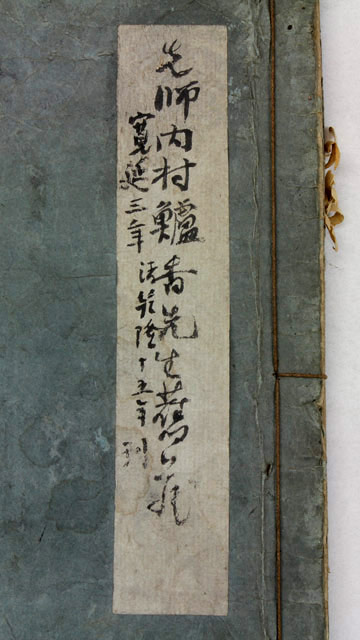 先師内村鱸香先生舊蔵
寛延三年清乾隆十五年刊